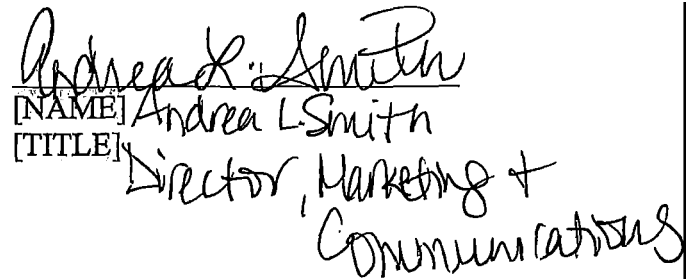 Andrea L. Smith
[NAME] Andrea L. Smith
[TITLE] Director, Marketing +
Communications